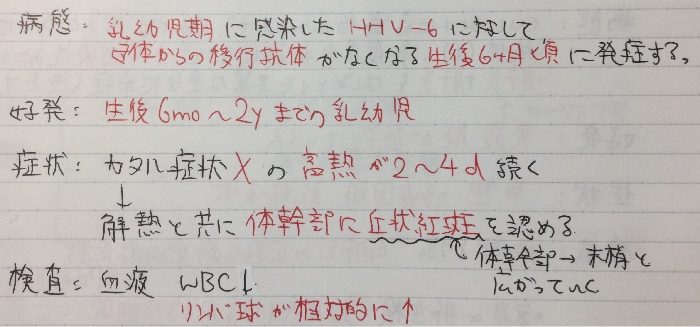 病態: 乳幼児期に感染したHHV-6に対して、
母体からの移行抗体がなくなる生後6ヶ月頃に発症する。
好発: 生後6mo～2yまでの乳幼児
症状: カタル症状×の高熱が2～4d続く
↓
解熱と共に体幹部に丘状紅斑を認める
↑体幹部→末梢と
広がっていく
検査: 血液 WBC↓
リンパ球が相対的に↑